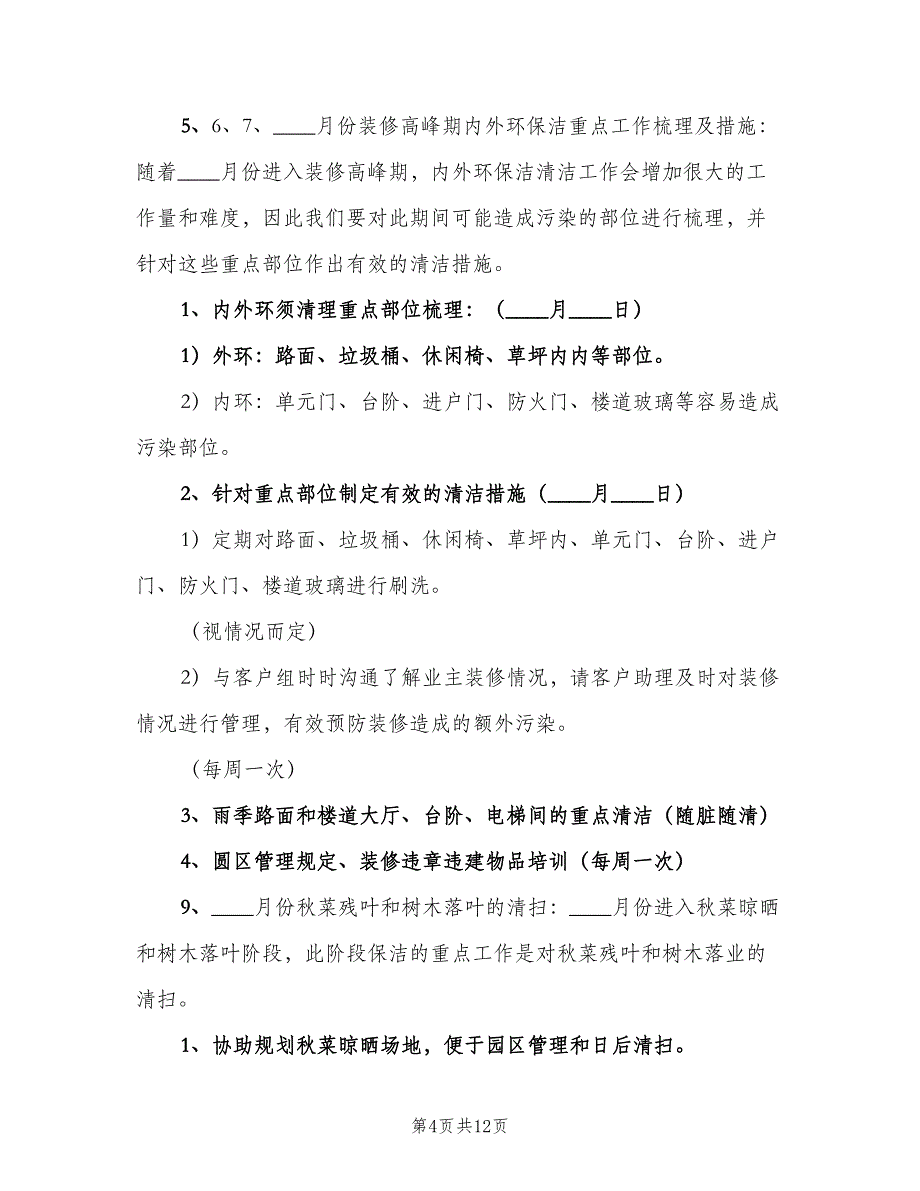 5、6、7、____月份装修高峰期内外环保洁重点工作梳理及措施：
随着____月份进入装修高峰期，内外环保洁清洁工作会增加很大的工
作量和难度，因此我们要对此期间可能造成污染的部位进行梳理，并
针对这些重点部位作出有效的清洁措施。
1、内外环须清理重点部位梳理：（____月____日）
1）外环：路面、垃圾桶、休闲椅、草坪内内等部位。
2）内环：单元门、台阶、进户门、防火门、楼道玻璃等容易造成
污染部位。
2、针对重点部位制定有效的清洁措施（____月____日）
1）定期对路面、垃圾桶、休闲椅、草坪内、单元门、台阶、进户
门、防火门、楼道玻璃进行刷洗。
（视情况而定）
2）与客户组时时沟通了解业主装修情况，请客户助理及时对装修
情况进行管理，有效预防装修造成的额外污染。
（每周一次）
3、雨季路面和楼道大厅、台阶、电梯间的重点清洁（随脏随清）
4、圆区管理规定、装修违章违建物品培训（每周一次）
9、____月份秋菜残叶和树木落叶的清扫：____月份进入秋菜晾晒
和树木落叶阶段，此阶段保洁的重点工作是对秋菜残叶和树木落业的
清扫。
1、协助规划秋菜晾晒场地，便于园区管理和日后清扫。
第4页共12页